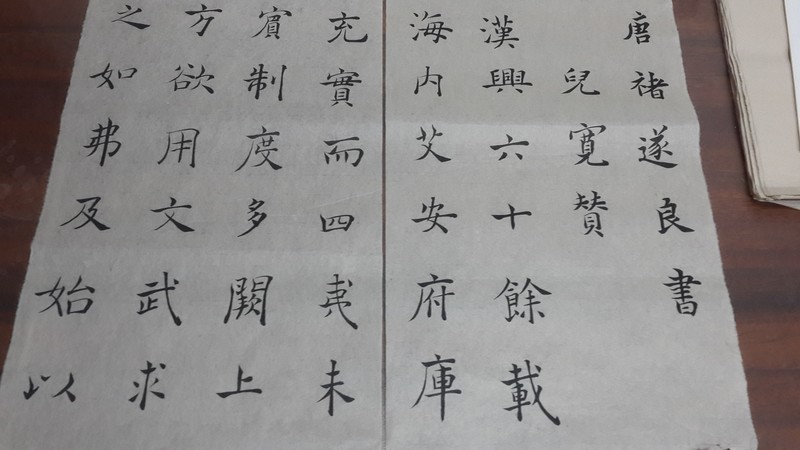 唐褚遂良書
兒寬贊
漢興六十餘載
海内艾安府庫
充實而四夷未
賓制度多闕上
方欲用文武求
之如弗及始以